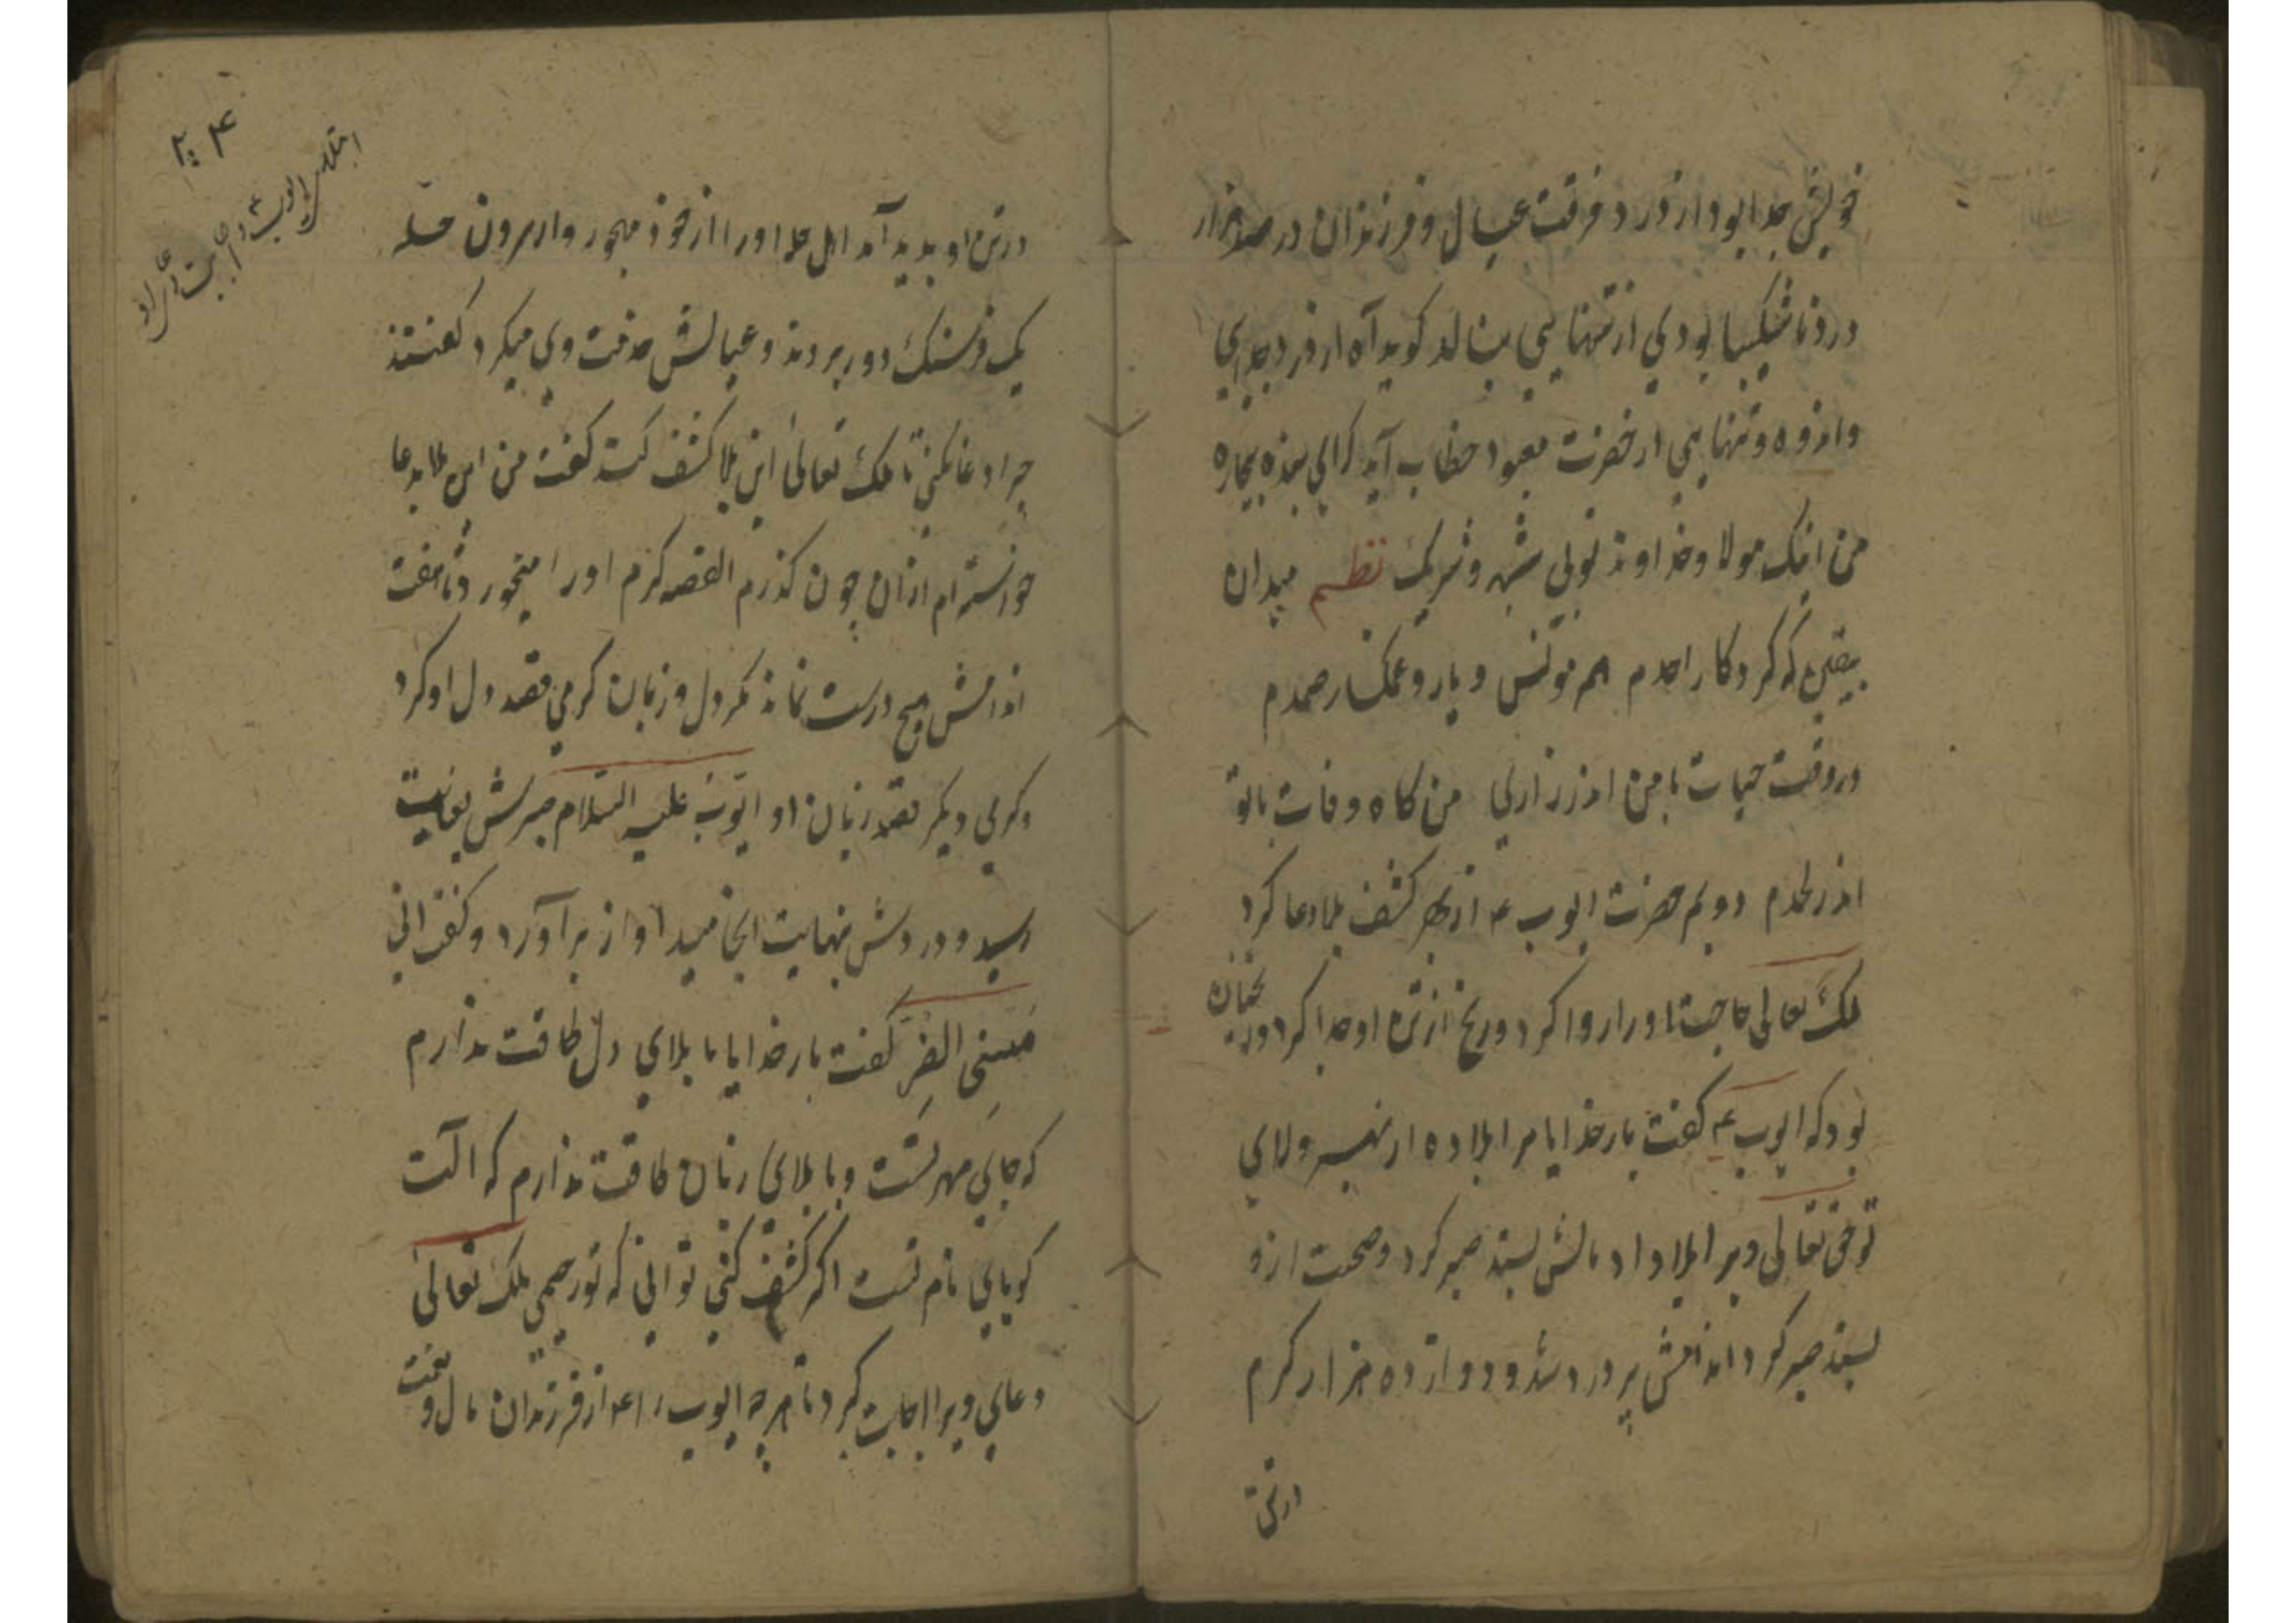 خویش جدا بود از درد فرقت عیال و فرزندان در صد هزار
درد ناشکیبا بودی از تنهایی بنالد کوید آه از درد جدایی
و اندوه و تنهایی از حضرت معبود خطاب آید که ای بنده بیچاره
من اینک مولا و خداوند توبی شبه و شریک نظم میدان
بیقین که کردکار احدم هم مونس و یار و غمکسار صمدم
در وقت حیات با من اندر زاری من کاه وفات با تو
اندر لحدم دویم حضرت ایوب ع از بهر کشف بلا دعا کرد
ملک تعالی حاجت اورا روا کرد و رنج از تن او جدا کرد و
چنان
بود که ایوب ع کفت بار خدایا مرا بلا ده از بهر ولای
تو حق تعالی ویرا بلا داد مالش بستد صبر کرد و صحت ازو
بستد صبر کرد اندامش پر درد شد و دوازده هزار کرم
در تن
۲۰۴
در تن او بدید آمد اهل محله اورا از خود مهجور و از برون محله
یک فرسنک دور بردند و عیالش خدمت وی میکرد کفتند
چرا دعا نکنی تا ملک تعالی این بلا کشف کند کفت من این بلا بدعا
خواسته‌ام ازان چون کذرم القصه کرم اورا میخورد تا هفت
اندامش هیچ درست نماند مکر دل و زبان کرمی قصد دل او کرد
و کرمی دیکر قصد زبان او ایوب علیه السلام صبرش بغایت
رسید و دردش بنهایت انجامید اواز برآورد و کفت انی
مسنی الضر کفت بار خدایا با بلای دل طاقت ندارم
که جای مهر تست و با بلای زبان طاقت ندارم که الت
کویای نام تست اکر کشف کنی توانی که تو رحیمی ملک تعالی
دعای ویرا اجابت کرد تا هر چه ایوب را ع از فرزندان مال و
نعمت